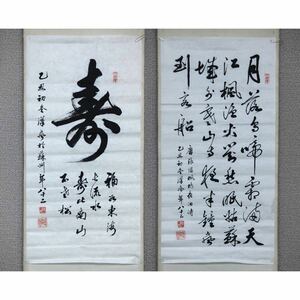 月落烏啼霜滿天
江楓漁火對愁眠姑蘇
城外寒山寺夜半鐘聲
到客船
唐張繼楓橋夜泊詩
壽
福如東海
長流水
壽比南山
不老松